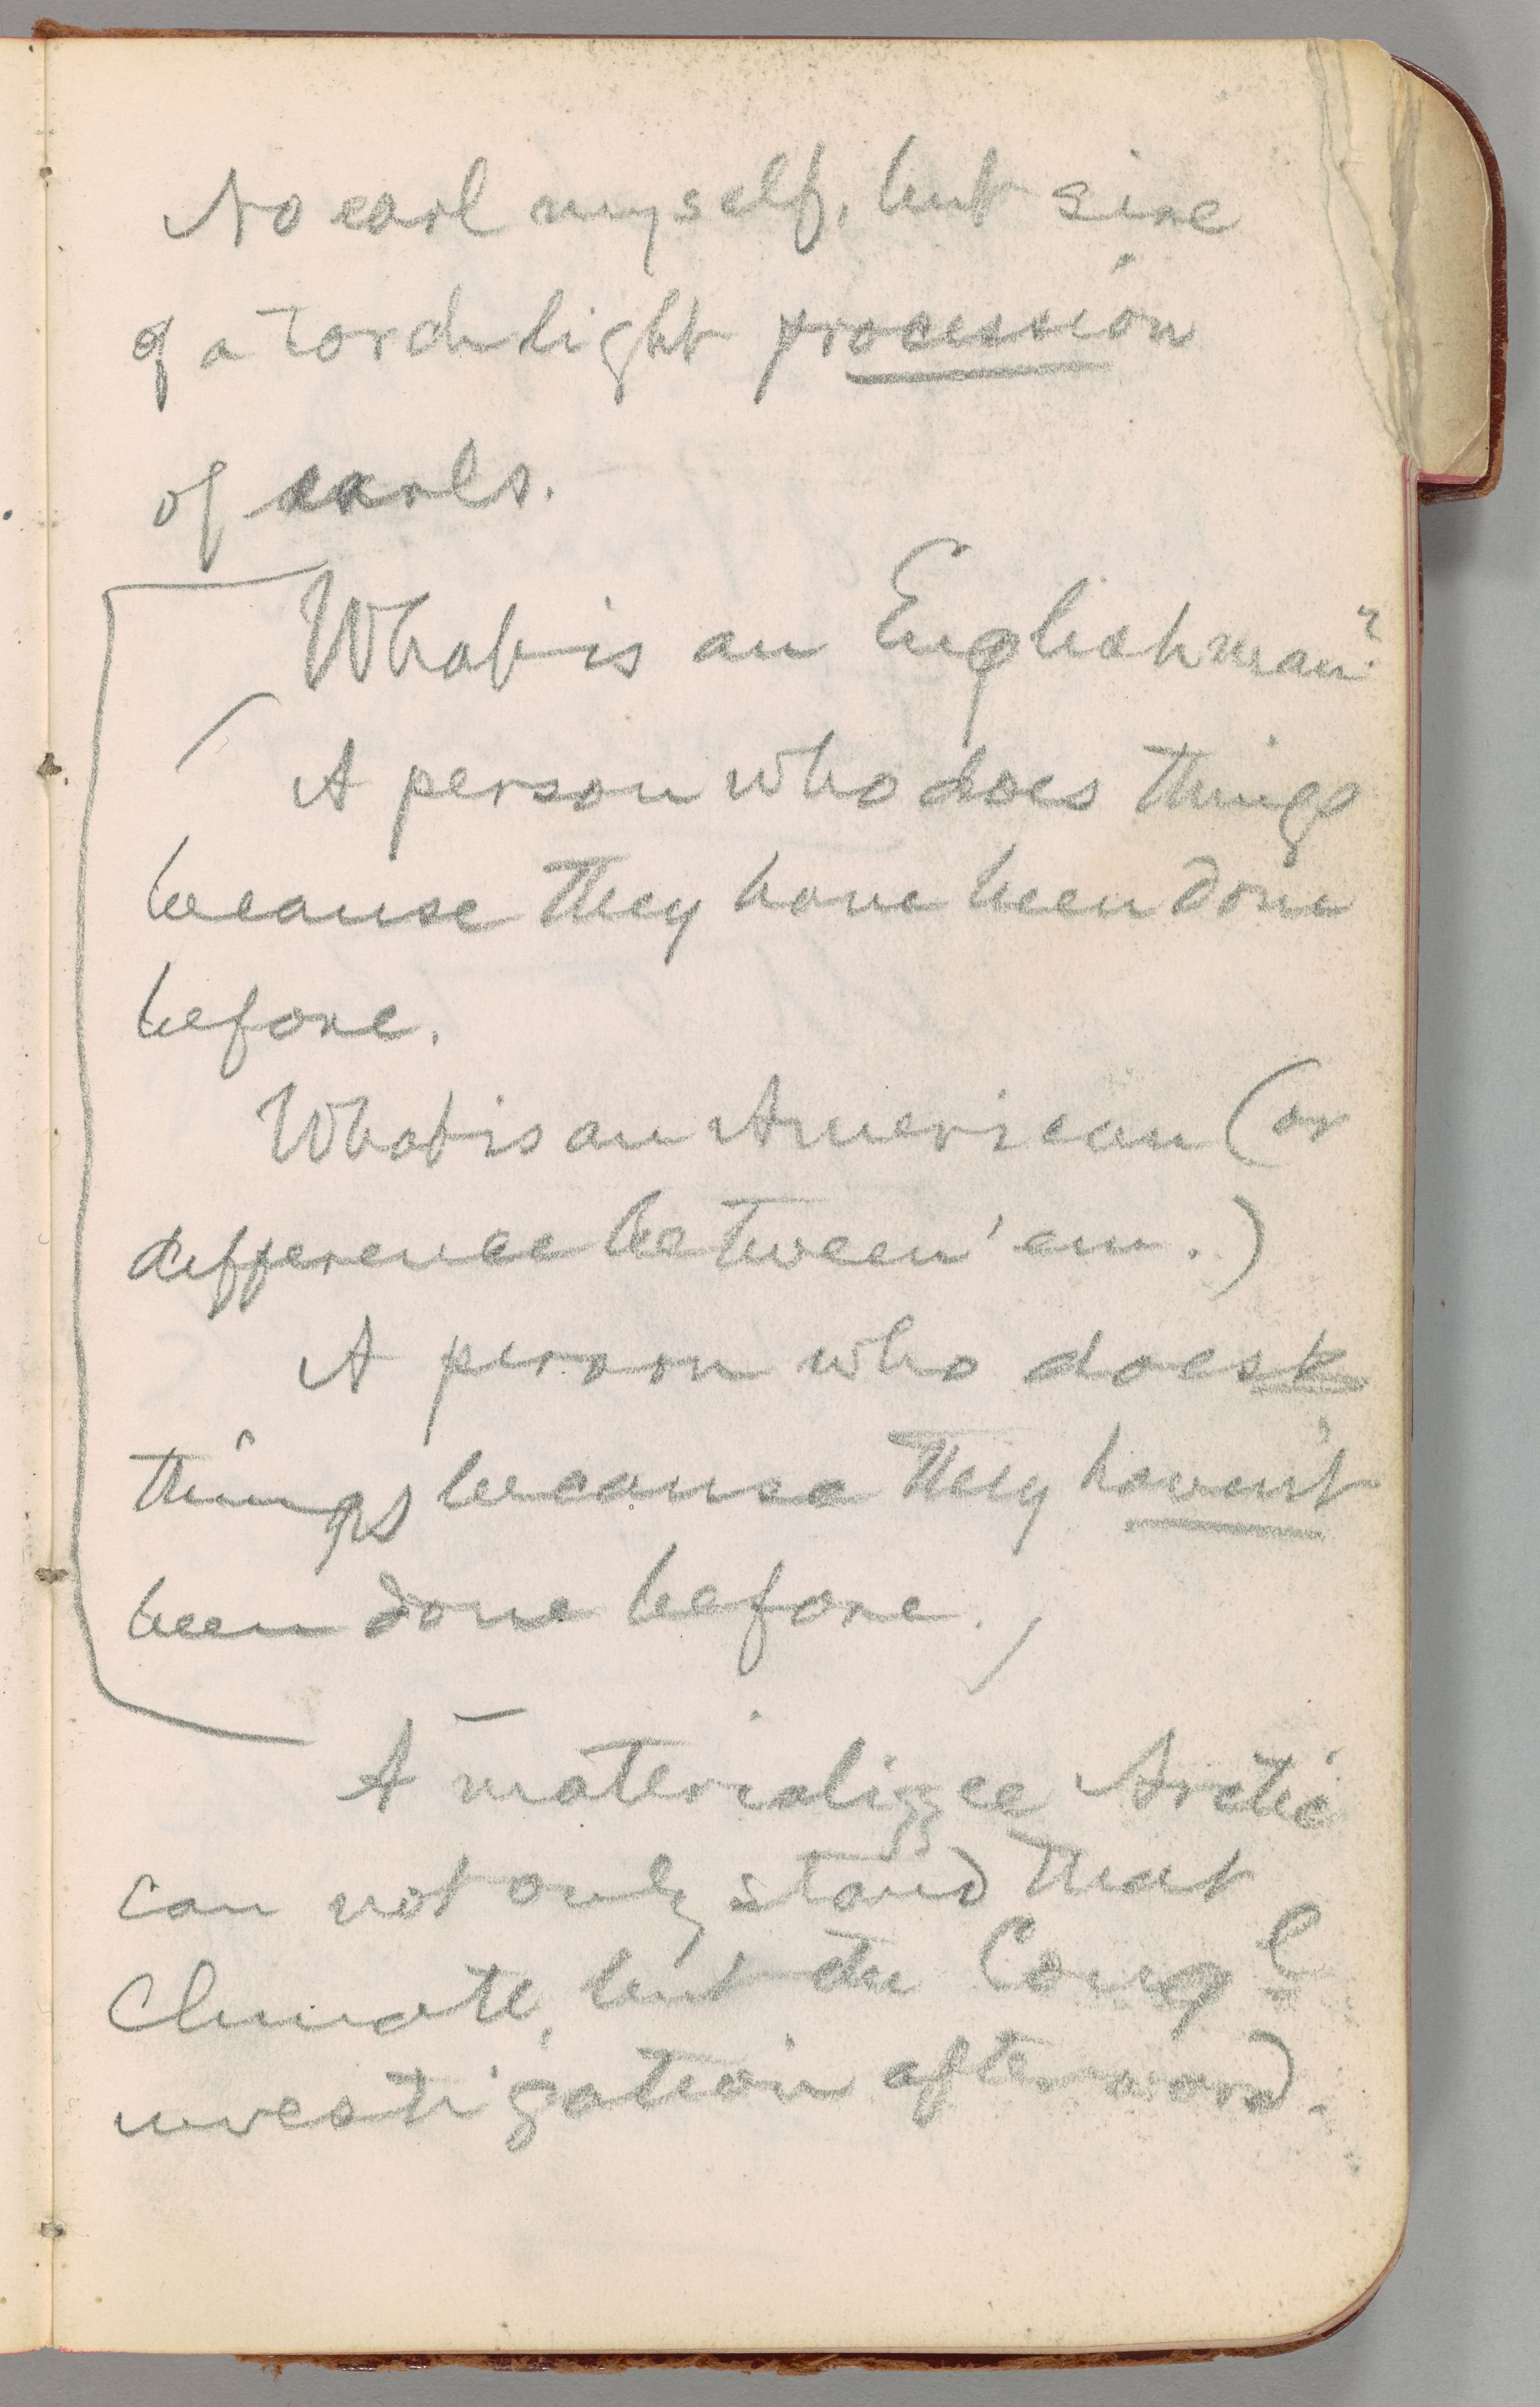 No earl myself, but sire
of a torchlight procession
of earls.
What is an Englishman?
A person who does things
because they have been done
before.
What is an American (or
difference between 'em.)
A person who does
things because they haven't
been done before.
A materializee Arctic
can not only stand that
climate, but the Congl
investigation afterward.